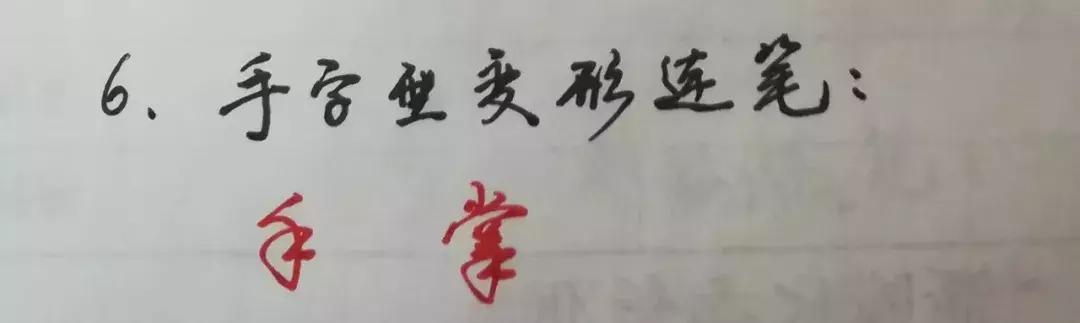 6、手字型变形连笔：
手 掌